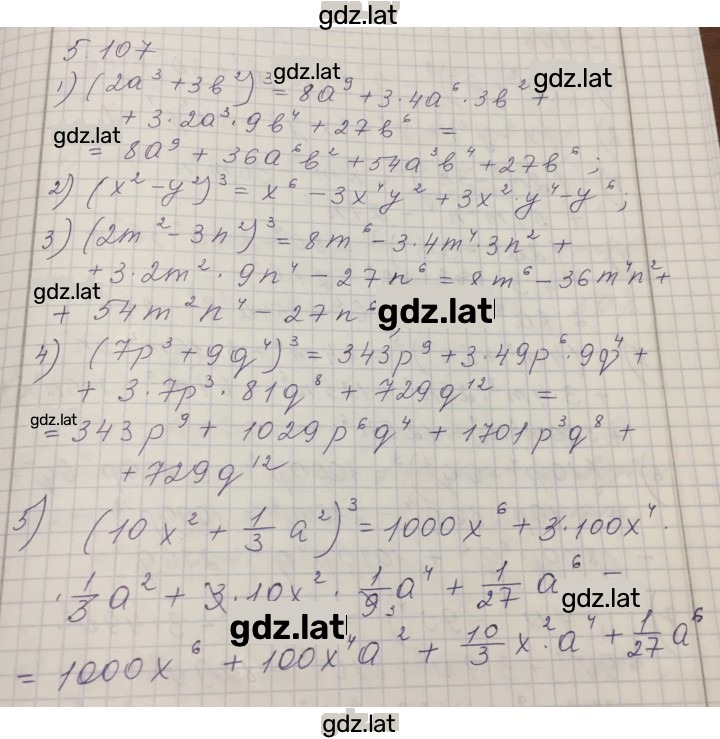 gdz.lat
5.107
1) (2a³ + 3b²)³ = 8a⁹ + 3·4a⁶·3b² +
gdz.lat
gdz.lat
+ 3·2a³·9b⁴ + 27b⁶ =
gdz.lat
= 8a⁹ + 36a⁶b² + 54a³b⁴ + 27b⁶;
2) (x² - y²)³ = x⁶ - 3x⁴y² + 3x²·y⁴ - y⁶;
3) (2m² - 3n²)³ = 8m⁶ - 3·4m⁴·3n² +
+ 3·2m²·9n⁴ - 27n⁶ = 8m⁶ - 36m⁴n² +
gdz.lat
+ 54m²n⁴ - 27n⁶;
gdz.lat
4) (7p³ + 9q⁴)³ = 343p⁹ + 3·49p⁶·9q⁴ +
+ 3·7p³·81q⁸ + 729q¹² =
gdz.lat
= 343p⁹ + 1029p⁶q⁴ + 1701p³q⁸ +
+ 729q¹²
5) (10x² + 1/3 a²)³ = 1000x⁶ + 3·100x⁴·
·1/3 a² + 3·10x²·1/9 3 a⁴ + 1/27 a⁶ =
gdz.lat
gdz.lat
= 1000x⁶ + 100x⁴a² + 10/3 x²·a⁴ + 1/27 a⁶
gdz.lat